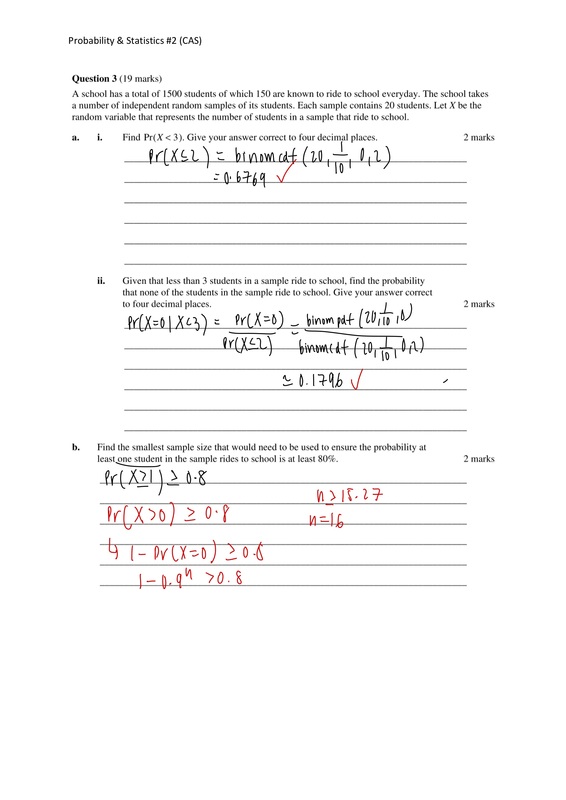 Probability & Statistics #2 (CAS)
Question 3 (19 marks)
A school has a total of 1500 students of which 150 are known to ride to school everyday. The school takes
a number of independent random samples of its students. Each sample contains 20 students. Let X be the
random variable that represents the number of students in a sample that ride to school.
a. i. Find Pr(X < 3). Give your answer correct to four decimal places. 2 marks
Pr(X≤2) = binomcdf (20, 1/10, 0, 2)
= 0.6769 ✓
ii. Given that less than 3 students in a sample ride to school, find the probability
that none of the students in the sample ride to school. Give your answer correct
to four decimal places. 2 marks
Pr(X=0 | X<3) = Pr(X=0) / Pr(X≤2) = binompdf (20, 1/10, 0) / binomcdf (20, 1/10, 0, 2)
≃ 0.1796 ✓
b. Find the smallest sample size that would need to be used to ensure the probability at
least one student in the sample rides to school is at least 80%. 2 marks
Pr(X≥1) ≥ 0.8
n ≥ 15.27
Pr(X>0) ≥ 0.8
n=16
↳ 1 - Pr(X=0) ≥ 0.8
1 - 0.9ⁿ > 0.8